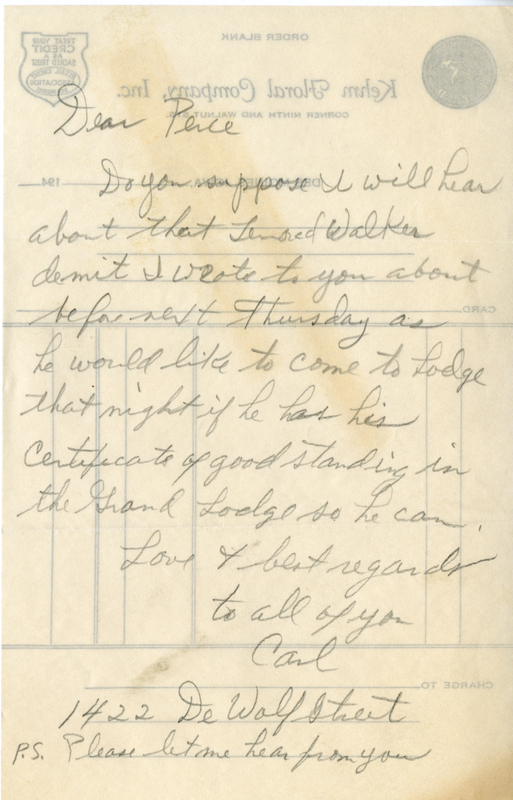 ORDER BLANK
TREAT YOUR
CREDIT
AS A
SACRED TRUST
Kehm Floral Company, Inc.
CORNER NINTH AND WALNUT STS.
Dear Perce
DES MOINES, IOWA, 194
Do you suppose I will hear
about that Walker
demit I wrote to you about
CARD
before next Thursday as
he would like to come to Lodge
that night if he has his
Certificate of good standing in
the Grand Lodge so he can.
Love & best regards
to all of you
Carl
CHARGE TO
1422 De Wolf Street
P.S. Please let me hear from you